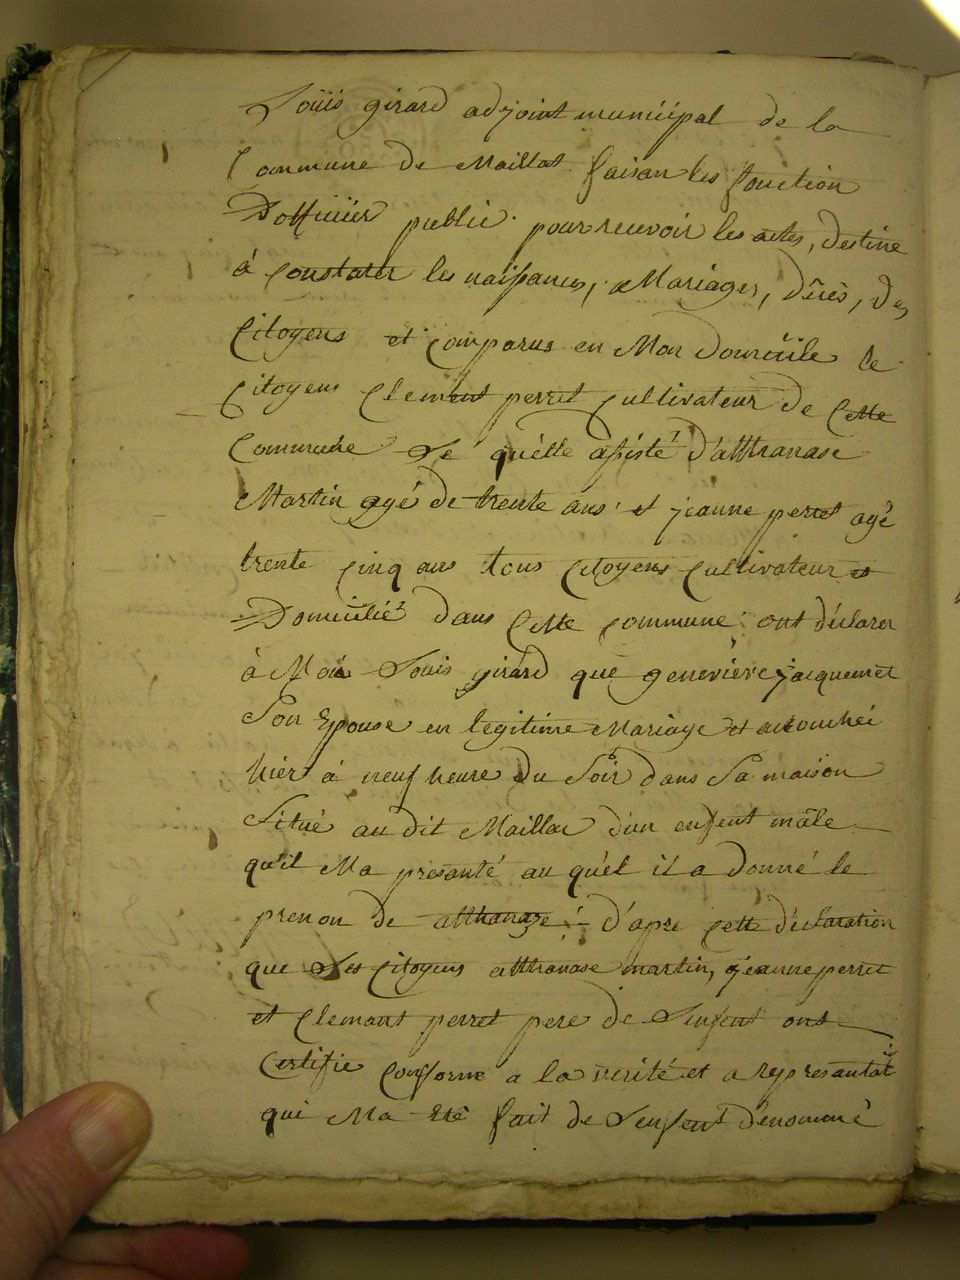 Louis girard adjoint municipal de la
Commune de Maillat faisan les fonction
Dofficier public pour recevoir les actes, destine
à constater les naissances, Mariages, décès, des
Citoyens et comparus en Mon domicile le
Citoyens Clement perret Cultivateur de Cette
Commune Le quelle assisté d'atthanase
Martin agé de trente ans et jeanne perret agé
trente cinq ans tous Citoyens Cultivateur et
Domicilié dans Cette commune ont déclarer
à Moi Louis girard que genevieve jacquemet
Son Epouse en legitime Mariage et accouchée
hier à neuf heure du Soir dans Sa maison
Situé au dit Maillac d'un enfent mâle
qu'il Ma présanté au quél il a donné le
prenon de atthanaze d'apre cette déclaration
que Les Citoyens atthanase martin, jeanne perret
et Clemant perret pere de Lenfent ont
Certifie Conforme a la vérité et a représantat
qui Ma Eté fait de Lenfent dénommé